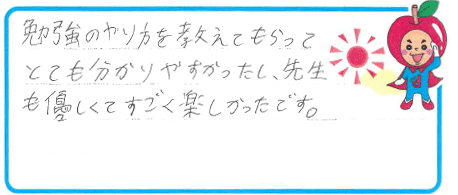 勉強のやり方を教えてもらって
とても分かりやすかったし、先生
も優しくてすごく楽しかったです。